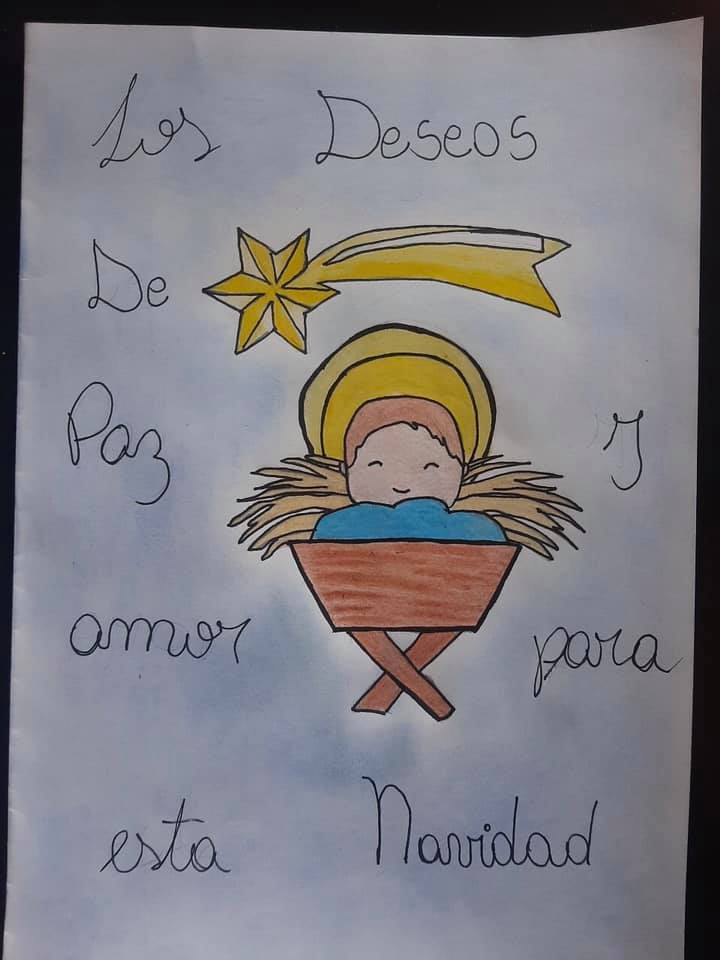 Los Deseos
De
Paz y
amor para
esta Navidad